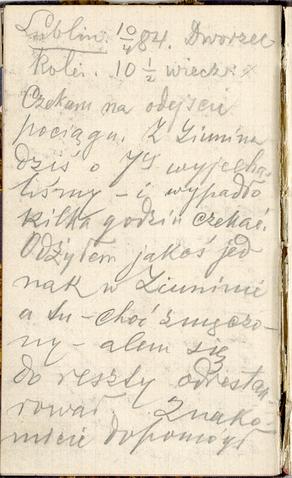 Lublin. 10/4 84. Dworzec
Kolei. 10 1/2 wieczór
Czekam na odejście
pociągu. Z Zimina
dziś o wyjecha-
liśmy – i wypadło
kilka godzin czekać.
Odżyłem jakoś jed
nak w Ziminie
a tu – choć zmęczo-
ny – alem się
do reszty odrestau-
rował. Znako-
micie dopomógł